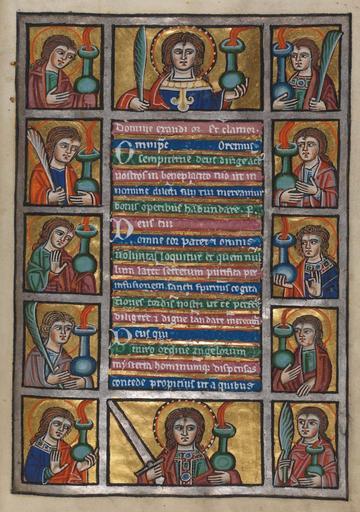 Domine exaudi or. Et clamor.
Omnipe Oremus.
sempiterne deus dirige act
nostros in beneplacito tuo ut in
nomine dilecti filii tui mereamur
bonis operibus habundare. P.
Deus cui
omne cor patet et omnis
voluntas loquitur et quem nul
lum latet secretum purifica per
infusionem sancti spiritus cogita
tiones cordis nostri ut te perfec
diligere et digne laudare mereamur
Deus qui
miro ordine angelorum
mysteria hominumque dispensas
concede propicius ut a quibus